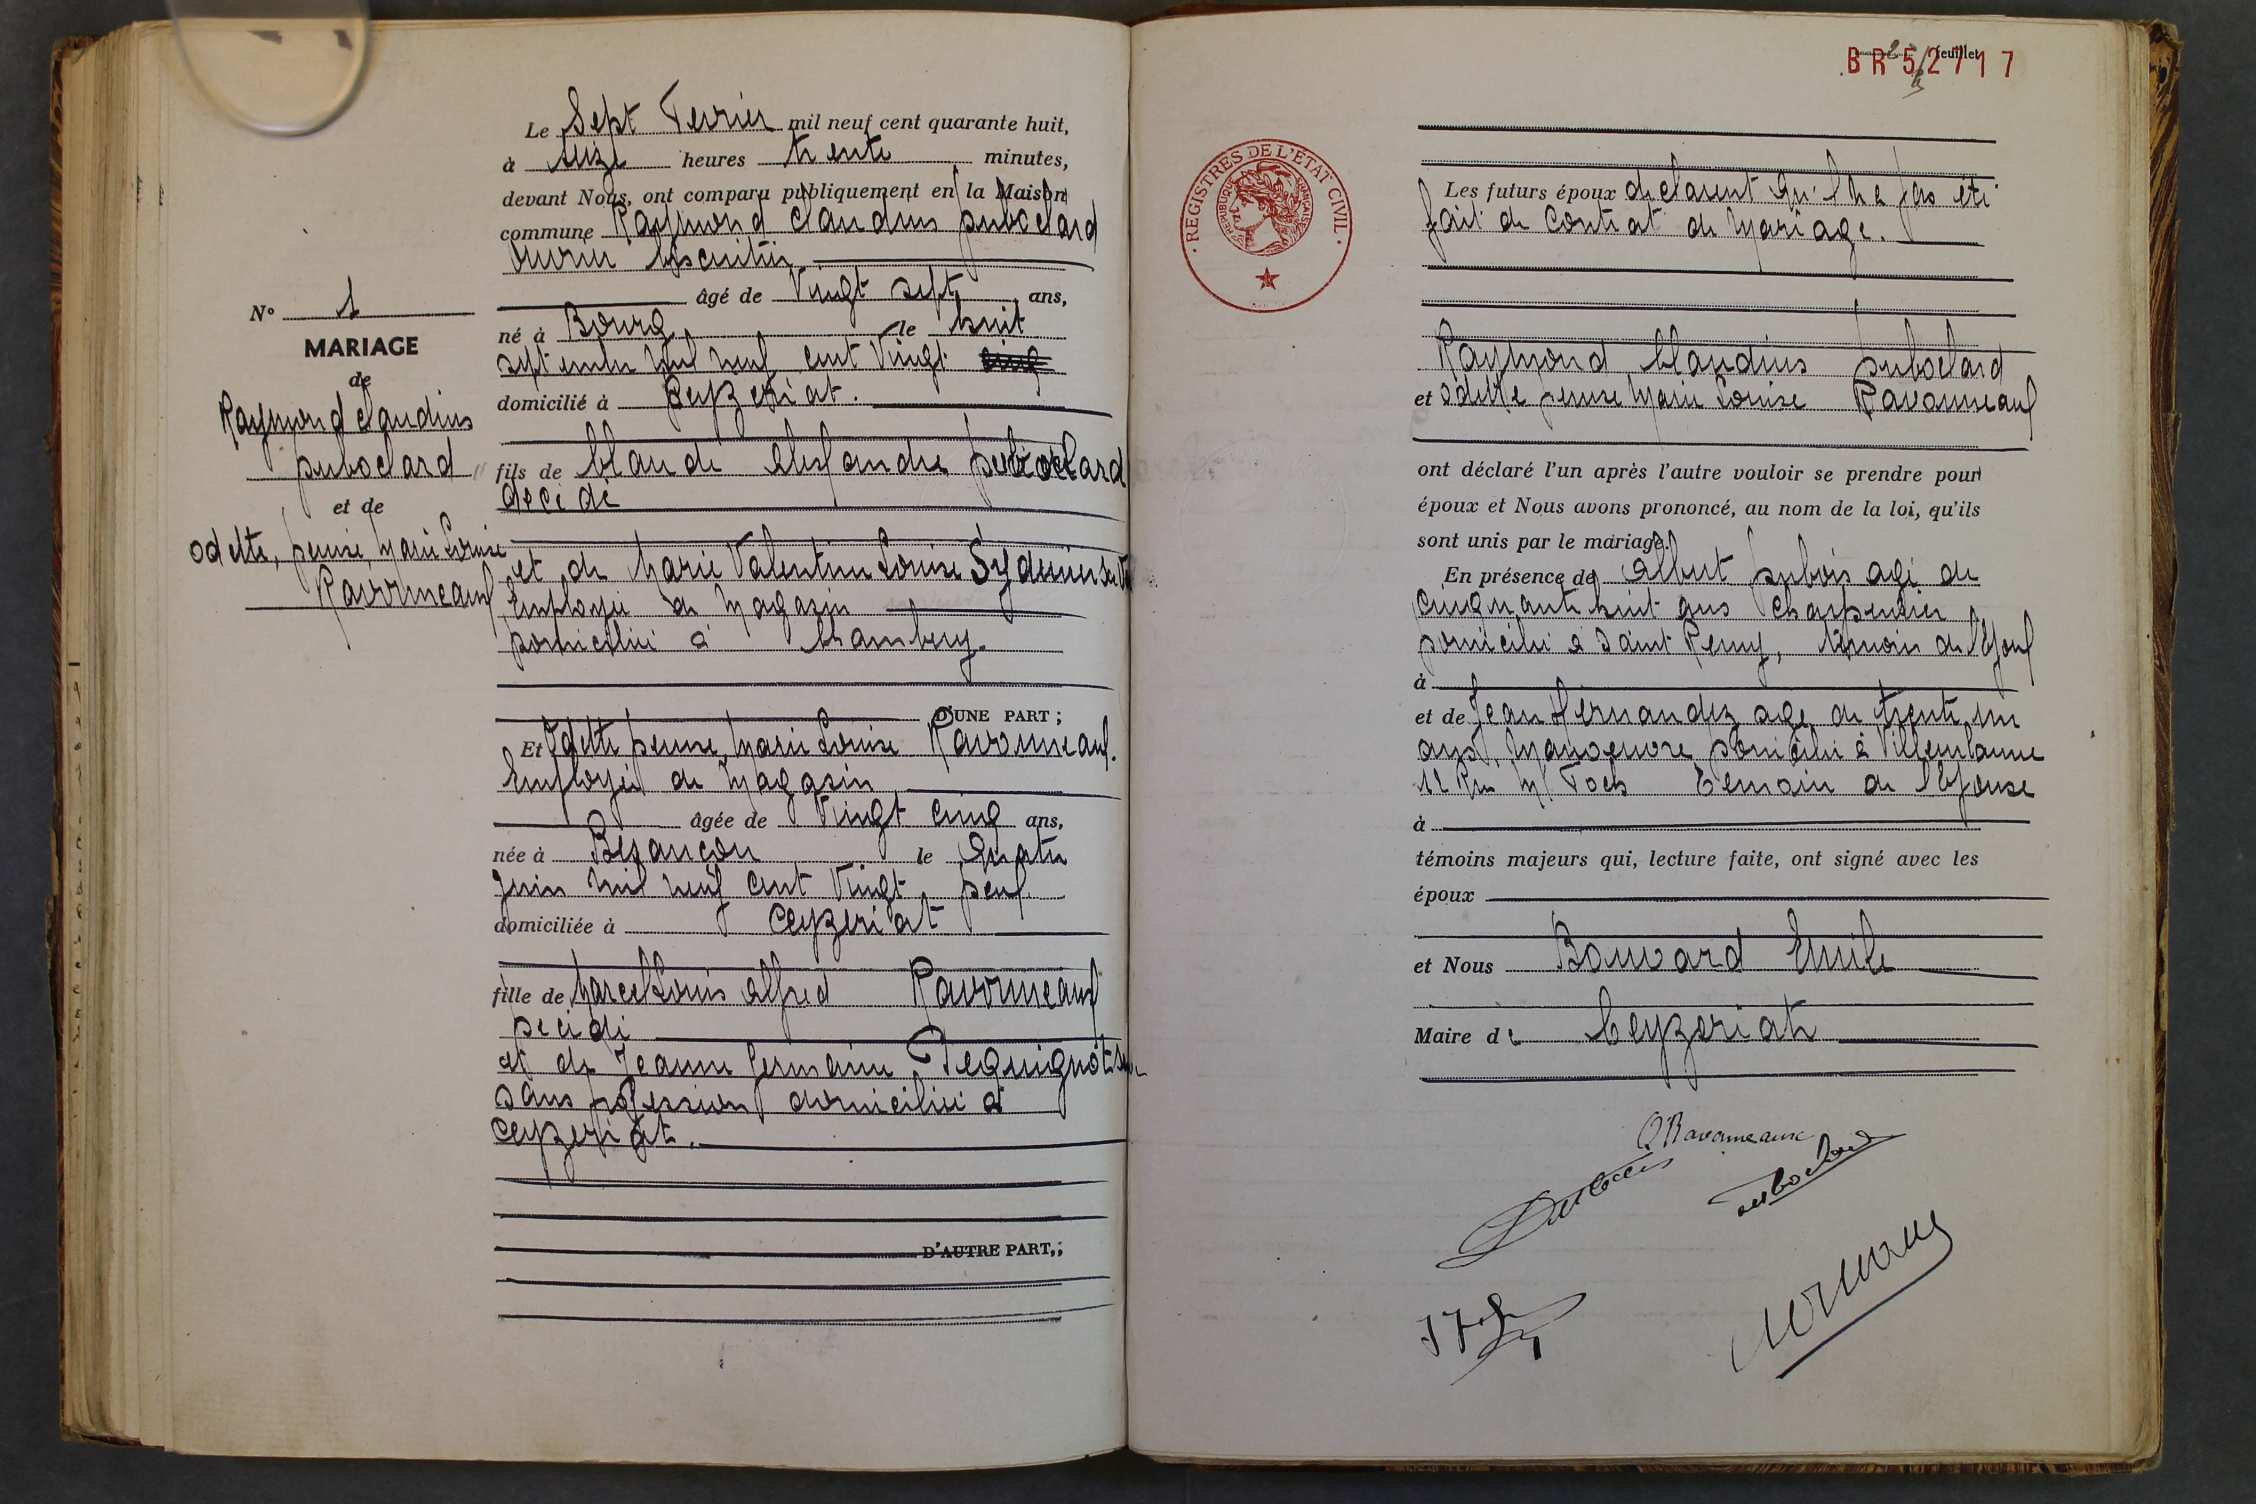 Le Sept Fevrier mil neuf cent quarante huit,
à seize heures trente minutes,
devant Nous, ont comparu publiquement en la Maison
commune Raymond Claudius Duboclard
ouvrier biscuitier
âgé de Vingt sept ans,
né à Bourg le huit
septembre mil neuf cent Vingt
domicilié à Ceyzeriat.
fils de Claude Alexandre Duboclard
decede
et de Marie Valentine Louise
Employée de Magasin
Domiciliée à Chambery
D'UNE PART ;
N° 1
MARIAGE
de
Raymond Claudius
Duboclard
et de
Odette, Denise, Marie Louise
Ravonneaux
Et Odette Denise, Marie Louise Ravonneaux.
Employée de Magasin
âgée de Vingt cinq ans,
née à Besançon le quatre
Juin mil neuf cent Vingt Deux
domiciliée à Ceyzeriat
fille de Marcel Louis Alfred Ravonneaux
Decede
et de Jeanne Germaine Pequignot
sans profession domiciliée à
Ceyzeriat.
D'AUTRE PART,;
BR 52717
feuillet
REGISTRES DE L'ÉTAT CIVIL
REPUBLIQUE FRANÇAISE
Les futurs époux declarent qu'il n'a pas ete
fait de Contrat de Mariage.
Raymond Claudius Duboclard
et Odette Denise Marie Louise Ravonneaux
ont déclaré l'un après l'autre vouloir se prendre pour
époux et Nous avons prononcé, au nom de la loi, qu'ils
sont unis par le mariage.
En présence de Albert Dubois age de
Cinquante huit ans Charpentier
Domicilie à Saint Remy, temoin de l'Epoux
à
et de Jean Hernandez age de trente un
ans, Manoeuvre Domicilie à Villeurbanne
12 Rue M. Foch Temoin de l'Epouse
à
témoins majeurs qui, lecture faite, ont signé avec les
époux
et Nous Bouvard Emile
Maire de Ceyzeriat
O Ravonneaux
Dubois
Duboclard